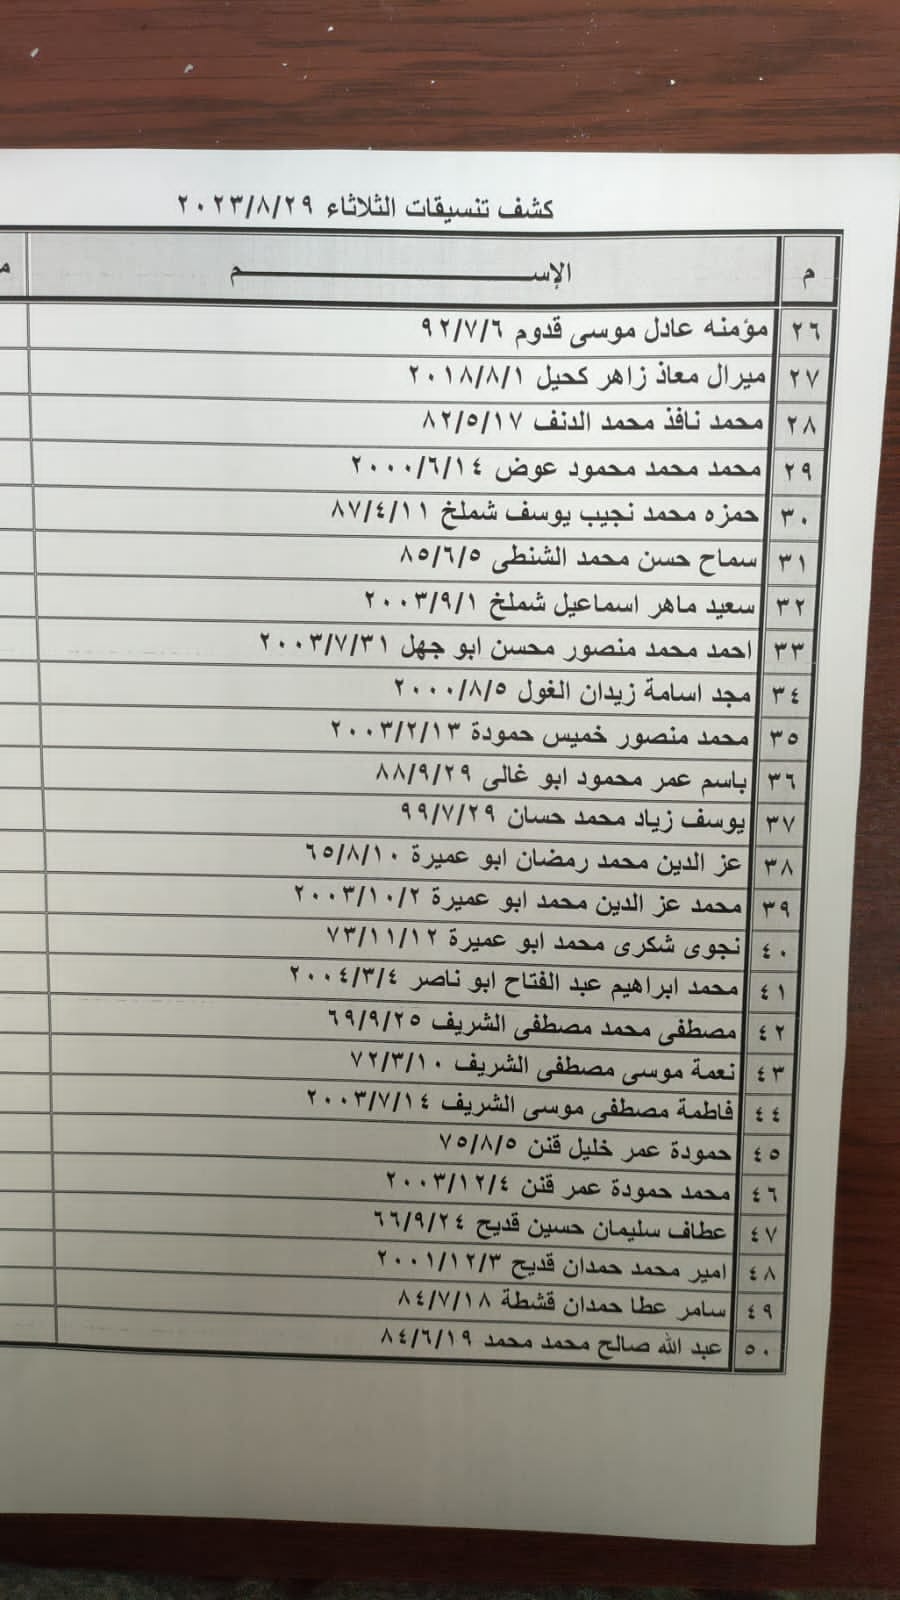 كشف تنسيقات الثلاثاء ٢٠٢٣/٨/٢٩
م الإســـــــــــــم م
٢٦ مؤمنه عادل موسى قدوم ٩٢/٧/٦
٢٧ ميرال معاذ زاهر كحيل ٢٠١٨/٨/١
٢٨ محمد نافذ محمد الدنف ٨٢/٥/١٧
٢٩ محمد محمد محمود عوض ٢٠٠٠/٦/١٤
٣٠ حمزه محمد نجيب يوسف شملخ ٨٧/٤/١١
٣١ سماح حسن محمد الشنطى ٨٥/٦/٥
٣٢ سعيد ماهر اسماعيل شملخ ٢٠٠٣/٩/١
٣٣ احمد محمد منصور محسن ابو جهل ٢٠٠٣/٧/٣١
٣٤ مجد اسامة زيدان الغول ٢٠٠٠/٨/٥
٣٥ محمد منصور خميس حمودة ٢٠٠٣/٢/١٣
٣٦ باسم عمر محمود ابو غالى ٨٨/٩/٢٩
٣٧ يوسف زياد محمد حسان ٩٩/٧/٢٩
٣٨ عز الدين محمد رمضان ابو عميرة ٦٥/٨/١٠
٣٩ محمد عز الدين محمد ابو عميرة ٢٠٠٣/١٠/٢
٤٠ نجوى شكرى محمد ابو عميرة ٧٣/١١/١٢
٤١ محمد ابراهيم عبد الفتاح ابو ناصر ٢٠٠٤/٣/٤
٤٢ مصطفى محمد مصطفى الشريف ٦٩/٩/٢٥
٤٣ نعمة موسى مصطفى الشريف ٧٢/٣/١٠
٤٤ فاطمة مصطفى موسى الشريف ٢٠٠٣/٧/١٤
٤٥ حمودة عمر خليل قنن ٧٥/٨/٥
٤٦ محمد حمودة عمر قنن ٢٠٠٣/١٢/٤
٤٧ عطاف سليمان حسين قديح ٦٦/٩/٢٤
٤٨ امير محمد حمدان قديح ٢٠٠١/١٢/٣
٤٩ سامر عطا حمدان قشطة ٨٤/٧/١٨
٥٠ عبد الله صالح محمد محمد ٨٤/٦/١٩